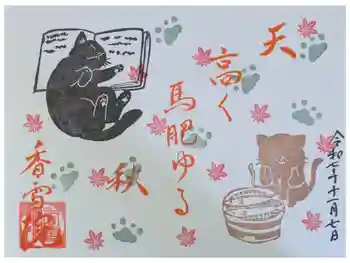 天
高く
馬肥ゆる
秋
令和七年十一月七日
香雪